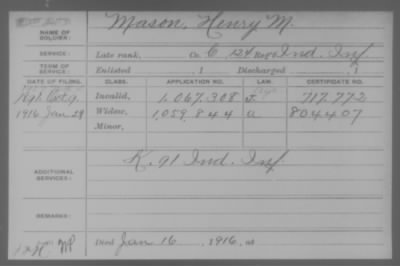 Mason, Henry M.
NAME OF SOLDIER:
SERVICE: Late rank, Co. C, 124 Reg't Ind. Inf.
TERM OF SERVICE: Enlisted 1 Discharged , 1
DATE OF FILING. CLASS. APPLICATION NO. LAW. CERTIFICATE NO.
1891 Oct 9. Invalid, 1,067,308 717,772
1916 Jan 29 Widow, 1,059,844 a 804407
Minor,
K. 91 Ind. Inf.
ADDITIONAL SERVICES:
REMARKS:
Died Jan 16, 1916, at